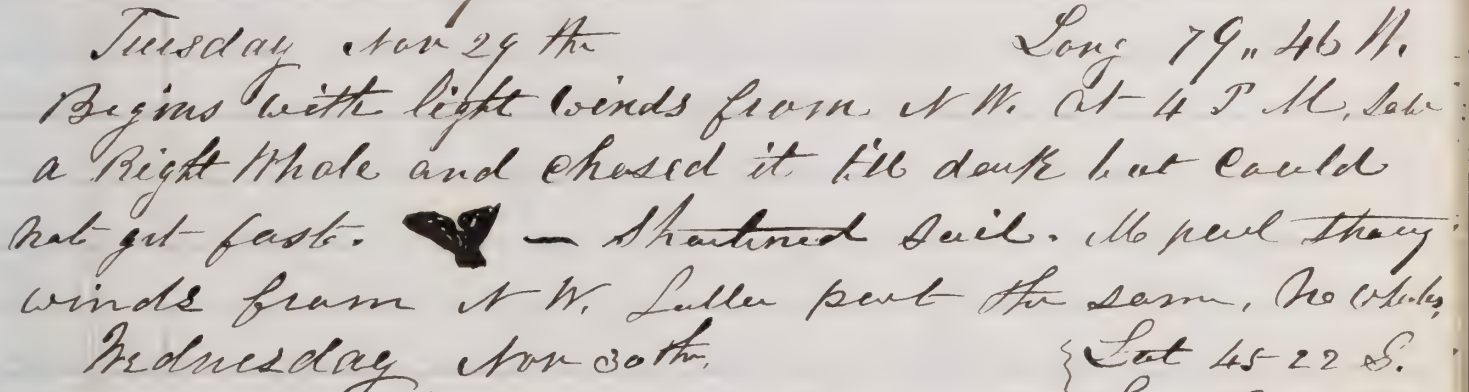 Tuesday Nov 29th Long 79,, 46 W.
Begins with light winds from N W. At 4 P M, saw
a Right Whale and chased it till dark but could
not get fast. — Shortined sail. M part strong
winds from N W. Latter part the same, No whales,
Wednesday Nov 30th. { Lat 45 22 S.